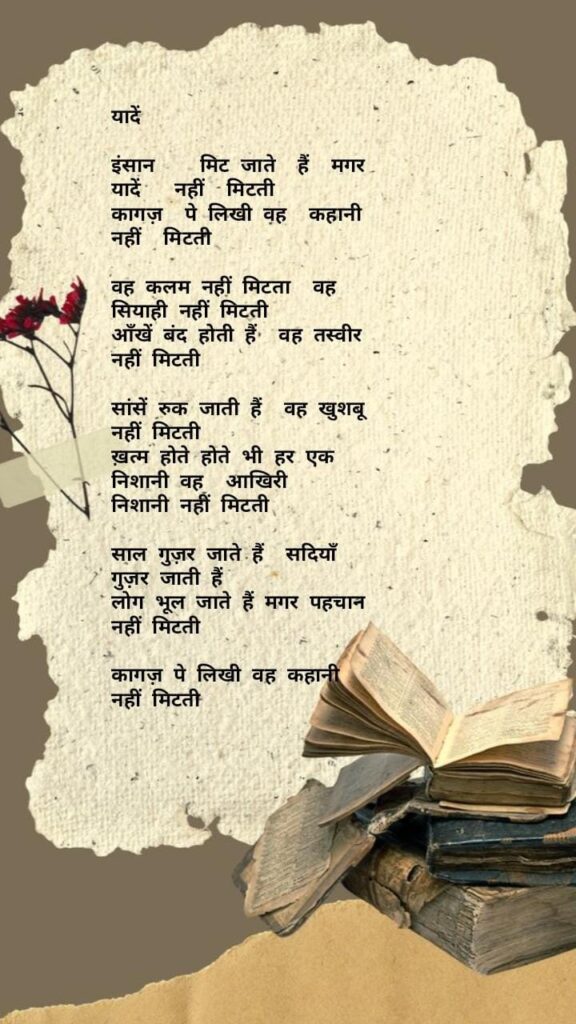 यादें
इंसान मिट जाते हैं मगर
यादें नहीं मिटती
कागज़ पे लिखी वह कहानी
नहीं मिटती
वह कलम नहीं मिटता वह
सियाही नहीं मिटती
आँखें बंद होती हैं वह तस्वीर
नहीं मिटती
सांसें रुक जाती हैं वह खुशबू
नहीं मिटती
ख़त्म होते होते भी हर एक
निशानी वह आखिरी
निशानी नहीं मिटती
साल गुज़र जाते हैं सदियाँ
गुज़र जाती हैं
लोग भूल जाते हैं मगर पहचान
नहीं मिटती
कागज़ पे लिखी वह कहानी
नहीं मिटती